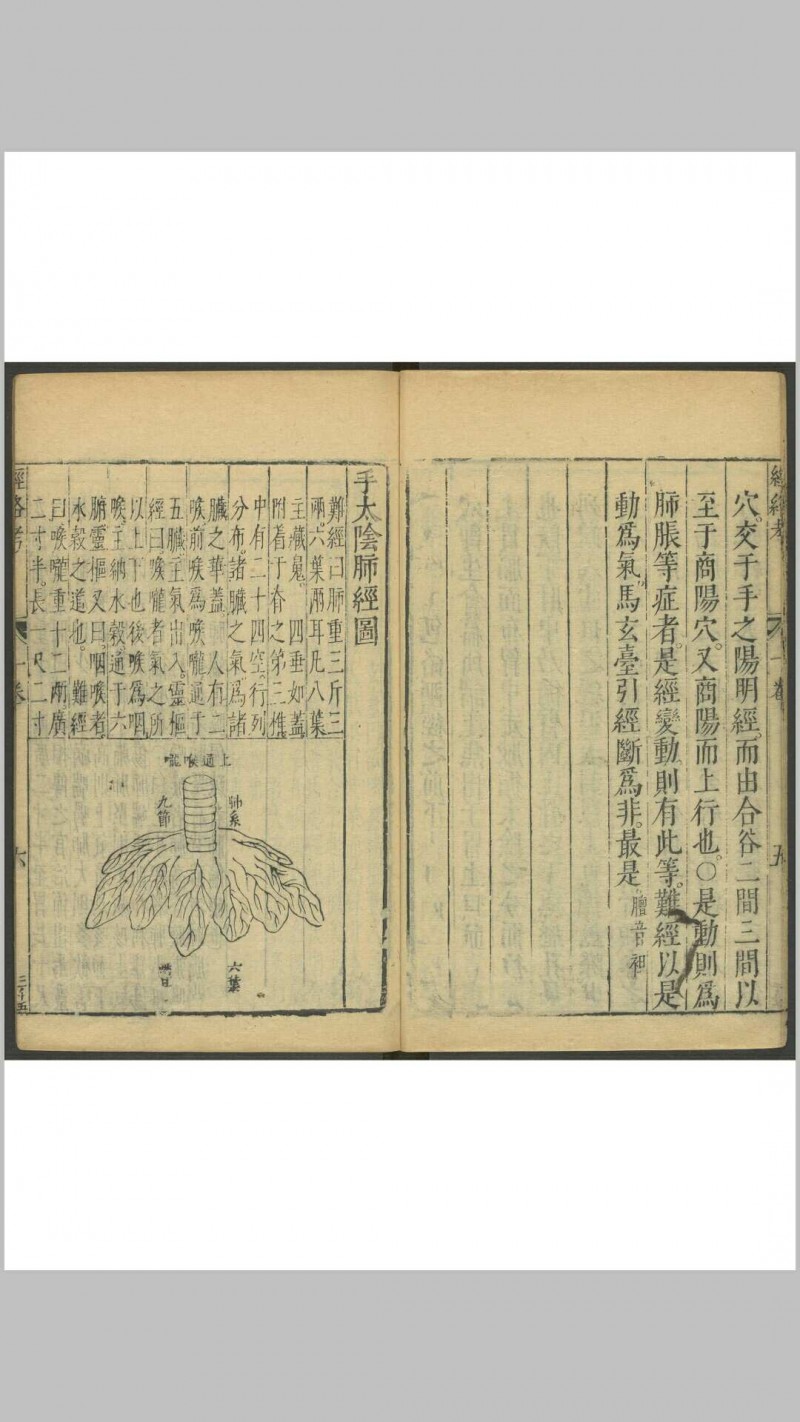 穴。交于手之陽明經。而由合谷二間三間以
至于商陽穴。又商陽而上行也。〇是動則爲
肺脹等症者。是經變動。則有此等。難經以是
動爲氣。馬玄臺引經斷爲非。最是。膾音袒
經絡考
一卷
五
手太陰肺經圖
難經曰肺重三斤三
兩六葉兩耳凡八葉
主藏魄。四垂如蓋
附着于脊之第三椎
中有二十四空。行列
分布。諸臟之氣。爲諸
臟之華蓋。人有二
喉。前喉爲喉嚨。通于
五臟。主氣出入。靈樞
經曰喉嚨者。氣之所
以上下也。後喉爲咽
喉。主納水穀。通于六
腑。靈樞又曰咽喉者
水穀之道也。難經
曰喉嚨重十二兩。廣
二寸半。長一尺二寸
上通喉嚨
肺系
九節
六葉
兩耳
經絡考
一卷
六
三十五